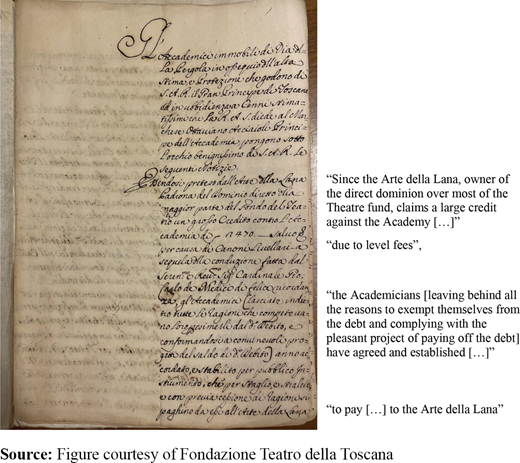 Gl'Accademici Immobili di Via d-
lla Pergola in ossequio dll'alta
stima, e Protezione che godono di
S.A.R. il Gran Principe di Toscana
ed in ubbidienza Cenni stima-
tissimi che la R.A.S. diede al Mar-
chese Ottaviano Acciaioli Princi-
pe dell'Accademia pongono sotto
l'occhio benignissimo di S.A.R. le
seguenti Notizie.
Essendosi preteso dall'Arte dlla Lana
Padrona del Dominio diretto dlla
maggior parte del Fondo del Tea-
tro un grosso Credito contro l'Ac-
cademia di 1470 salvo
per causa di Canone Livellari a
seguela dlla conduzione fatta dal
Seren.mo e Rev.mo Sig.r Cardinale Gio:
Carlo de Medici di felice ricordan-
za, gl'Accademici [lasciate indie-
tro tutte le Ragioni che competeva-
no loro p esimersi dal d.o Debito, e
conformandosi pro-
getto del saldo di d.o Debito] anno ac-
cordato, e stabilito per pubblico In-
strumento, che per Staglio, e Stralcio,
e con previa cessione di Ragioni si
paghino da essi all'Arte della Lana
“Since the Arte della Lana, owner of
the direct dominion over most of the
Theatre fund, claims a large credit
against the Academy […]”
“due to level fees”,
“the Academicians [leaving behind all
the reasons to exempt themselves from
the debt and complying with the
pleasant project of paying off the debt]
have agreed and established […]”
“to pay […] to the Arte della Lana”
Source: Figure courtesy of Fondazione Teatro della Toscana